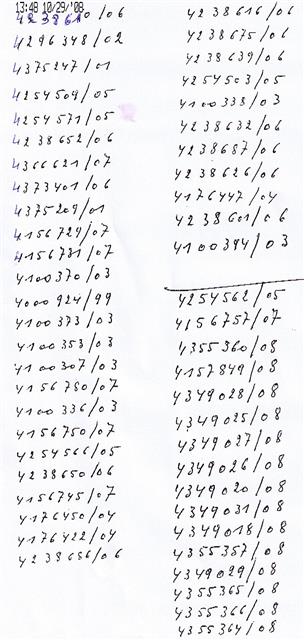 13:48 10/29/'08
4296348/02
4375247/01
4254509/05
4254571/05
4238652/06
4366621/07
4373401/06
4375209/01
4156729/07
4156731/07
4100370/03
4000924/99
4100373/03
4100353/03
4100307/03
4156780/07
4100336/03
4156750/07
4254566/05
4238650/06
4156745/07
4176450/04
4176422/04
4238686/06
4238616/06
4238675/06
4238639/06
4254503/05
4100338/03
4238632/06
4238687/06
4238626/06
4176447/04
4238601/06
4100394/03
4254562/05
4156757/07
4355360/08
4157849/08
4349028/08
4349025/08
4349027/08
4349026/08
4349020/08
4349031/08
4349018/08
4355357/08
4349029/08
4355365/08
4355366/08
4355364/08